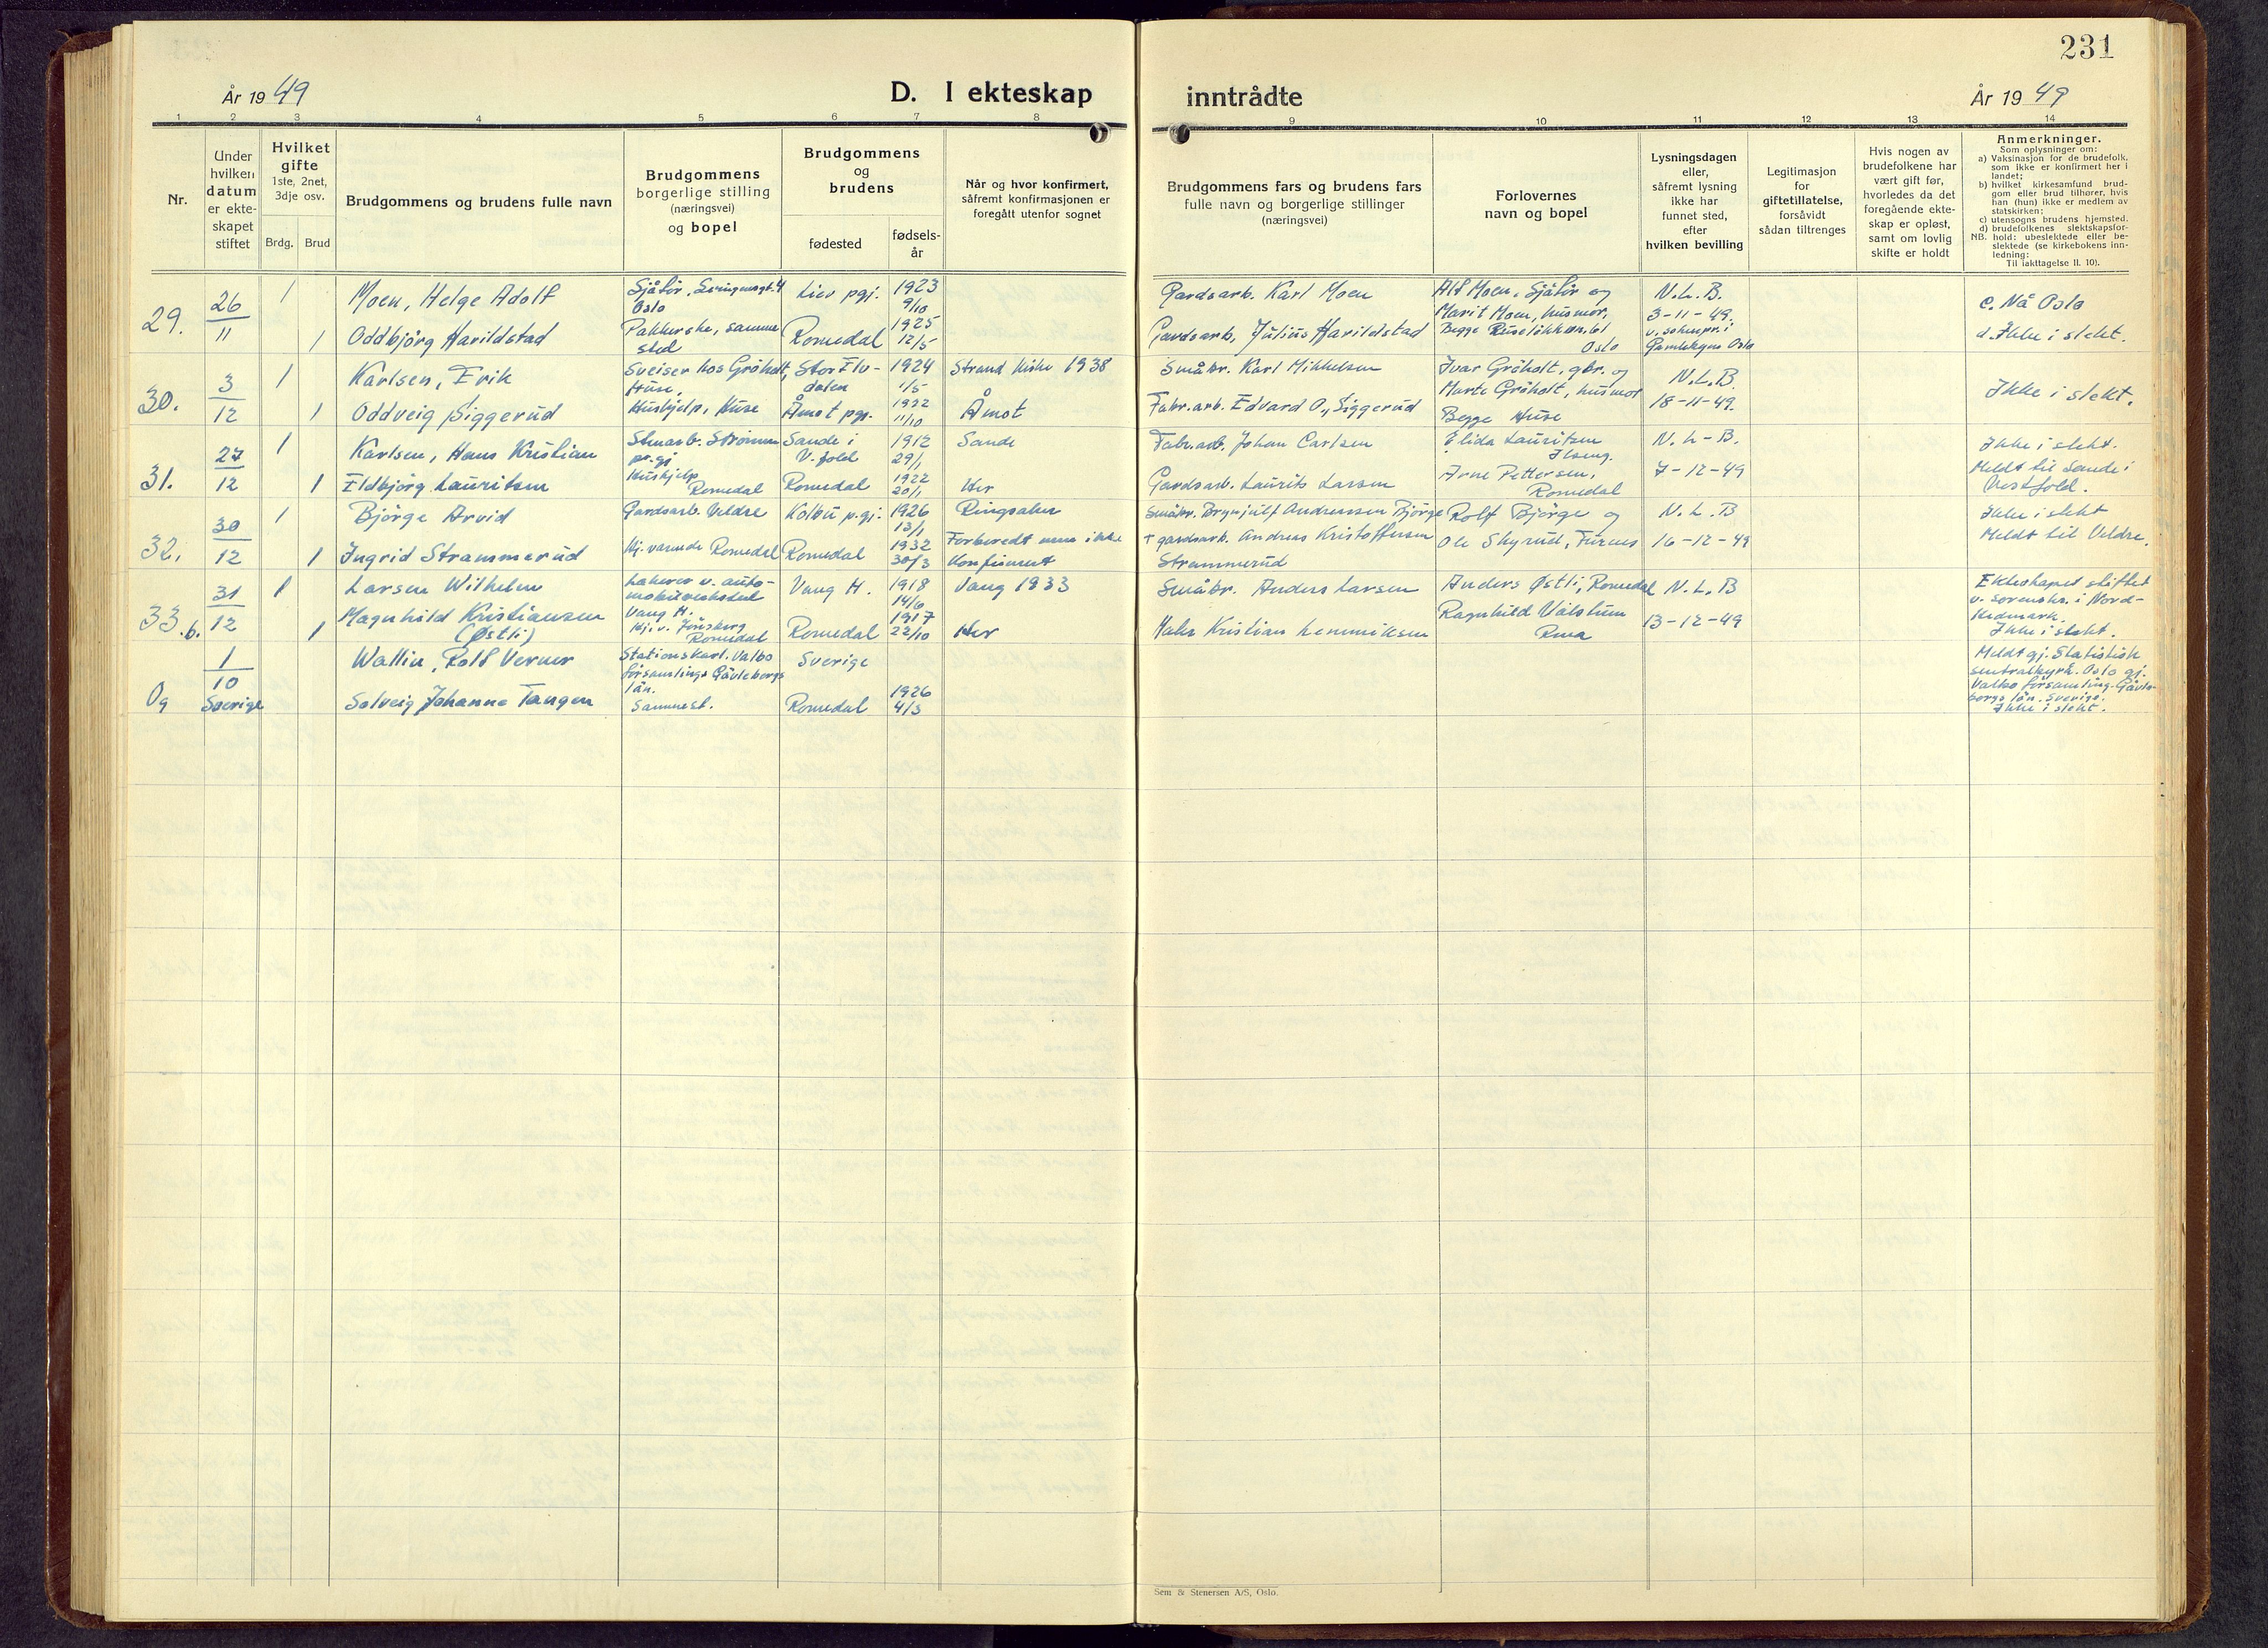 231
År 19 49
D. I ekteskap
inntrådte
År 19 49
1 2 3 4 5 6 7 8 9 10 11 12 13 14
Nr.
Under
hvilken
datum
er ekte-
skapet
stiftet
Hvilket
gifte
1ste, 2net,
3dje osv.
Brdg. Brud
Brudgommens og brudens fulle navn
Brudgommens
borgerlige stilling
(næringsvei)
og bopel
Brudgommens
og
brudens
fødested
fødsels-
år
Når og hvor konfirmert,
såfremt konfirmasjonen er
foregått utenfor sognet
Brudgommens fars og brudens fars
fulle navn og borgerlige stillinger
(næringsvei)
Forlovernes
navn og bopel
Lysningsdagen
eller,
såfremt lysning
ikke har
funnet sted,
efter
hvilken bevilling
Legitimasjon
for
giftetillatelse,
forsåvidt
sådan tiltrenges
Hvis nogen av
brudefolkene har
vært gift før,
hvorledes da det
foregående ekte-
skap er opløst,
samt om lovlig
skifte er holdt
Anmerkninger.
Som oplysninger om:
a) Vaksinasjon for de brudefolk,
som ikke er konfirmert her i
landet;
b) hvilket kirkesamfund brud-
gom eller brud tilhører, hvis
han (hun) ikke er medlem av
statskirken;
c) utensogns brudens hjemsted.
d) brudefolkenes slektskapsfor-
NB. hold: ubeslektede eller be-
slektede (se kirkebokens inn-
ledning:
Til iakttagelse II. 10).
29.
26
11
1
1
Moen, Helge Adolf
Oddbjörg Harildstad
Sjåför,
Oslo
Pakkerske, samme
sted
Lier pgj.
Romedal
1923
9/10
1925
12/5
Gardsarb. Karl Moen
Gardsarb, Julius Harildstad
Alf Moen, Sjåför og
Marit Moen, husmor,
Begge Ruselökkvn, 61
Oslo
N.L.B.
3-11-49.
v, soknepr. i
Gamlebyen Oslo
c. Nå Oslo
d. Ikke i slekt.
30.
3
12
1
1
Karlsen, Erik
Oddveig Siggerud
Sveiser hos Gröholt,
Huse,
Hushjelp, Huse
Stor Elv-
dalen
Åmot pgj.
1924
1/5
1922
11/10
Strand kirke 1938
Åmot
Småbr. Karl Mikkelsen
Fabr.arb. Edvard O., Siggerud
Ivar Gröholt, gbr. og
Marte Gröholt, husmor
Begge Huse
N.L.B.
18-11-49.
Ikke i slekt.
31.
27
12
1
1
Karlsen, Hans Kristian
Eldbjörg Lauritsen
Strömm
pr.gj
Hushjelp
Romedal
Sande i
V. fold
Romedal
1912
29/1
1922
20/1
Sande
Her
Fabr.arb. Johan Carlsen
Gardsarb. Laurits Larsen
Elida Lauritsen
Ilseng.
Arne Pettersen,
Romedal
N. L-B.
7-12-49
Ikke i slekt.
Meldt til Sande i
Vestfold.
32.
30
12
1
1
Björge Arvid
Ingrid Strammerud
Gardsarb. Veldre
Hj. værende Romedal
Kolbu p.gj.
Romedal
1926
13/1
1932
30/3
Ringsaker
Forberedt men ikke
konfirmert
Småbr. Brynjulf Andreassen Björge
+ gardsarb. Andreas Kristoffersen
Strammerud
Rolf Björge og
Ole Skyrud, Furnes
N. L. B
16-12-49
Ikke i slekt
Meldt til Veldre.
33.b.
31
12
1
1
Larsen Wilhelm
Magnhild Kristiansen
(Østli)
Lakerer v. auto-
mobilverksted
Vang H.
Hj. v. Jönsberg
Romedal
Vang H.
Romedal
1918
14/6
1917
22/10
Vang 1933
Her
Småbr. Anders Larsen
Maler Kristian Henriksen
Anders Østli, Romedal
Ragnhild
N. L. B
13-12-49
Ekteskapet stiftet
v. sorenskr. i Nord-
Hedmark.
Ikke i slekt.
Og
1
10
Sverige
Wallin, Rolf Verner
Solveig Johanne Tangen
Stationskarl. Valbo
församlings Gävleborgs
län.
Sammest.
Sverige
Romedal
1926
4/3
Meldt gj. Statistisk
sentralbyrå. Oslo gj.
Valbo församling. Gävle-
borgs län. Sverige.
Ikke i slekt.
Sem & Stenersen A/S, Oslo.